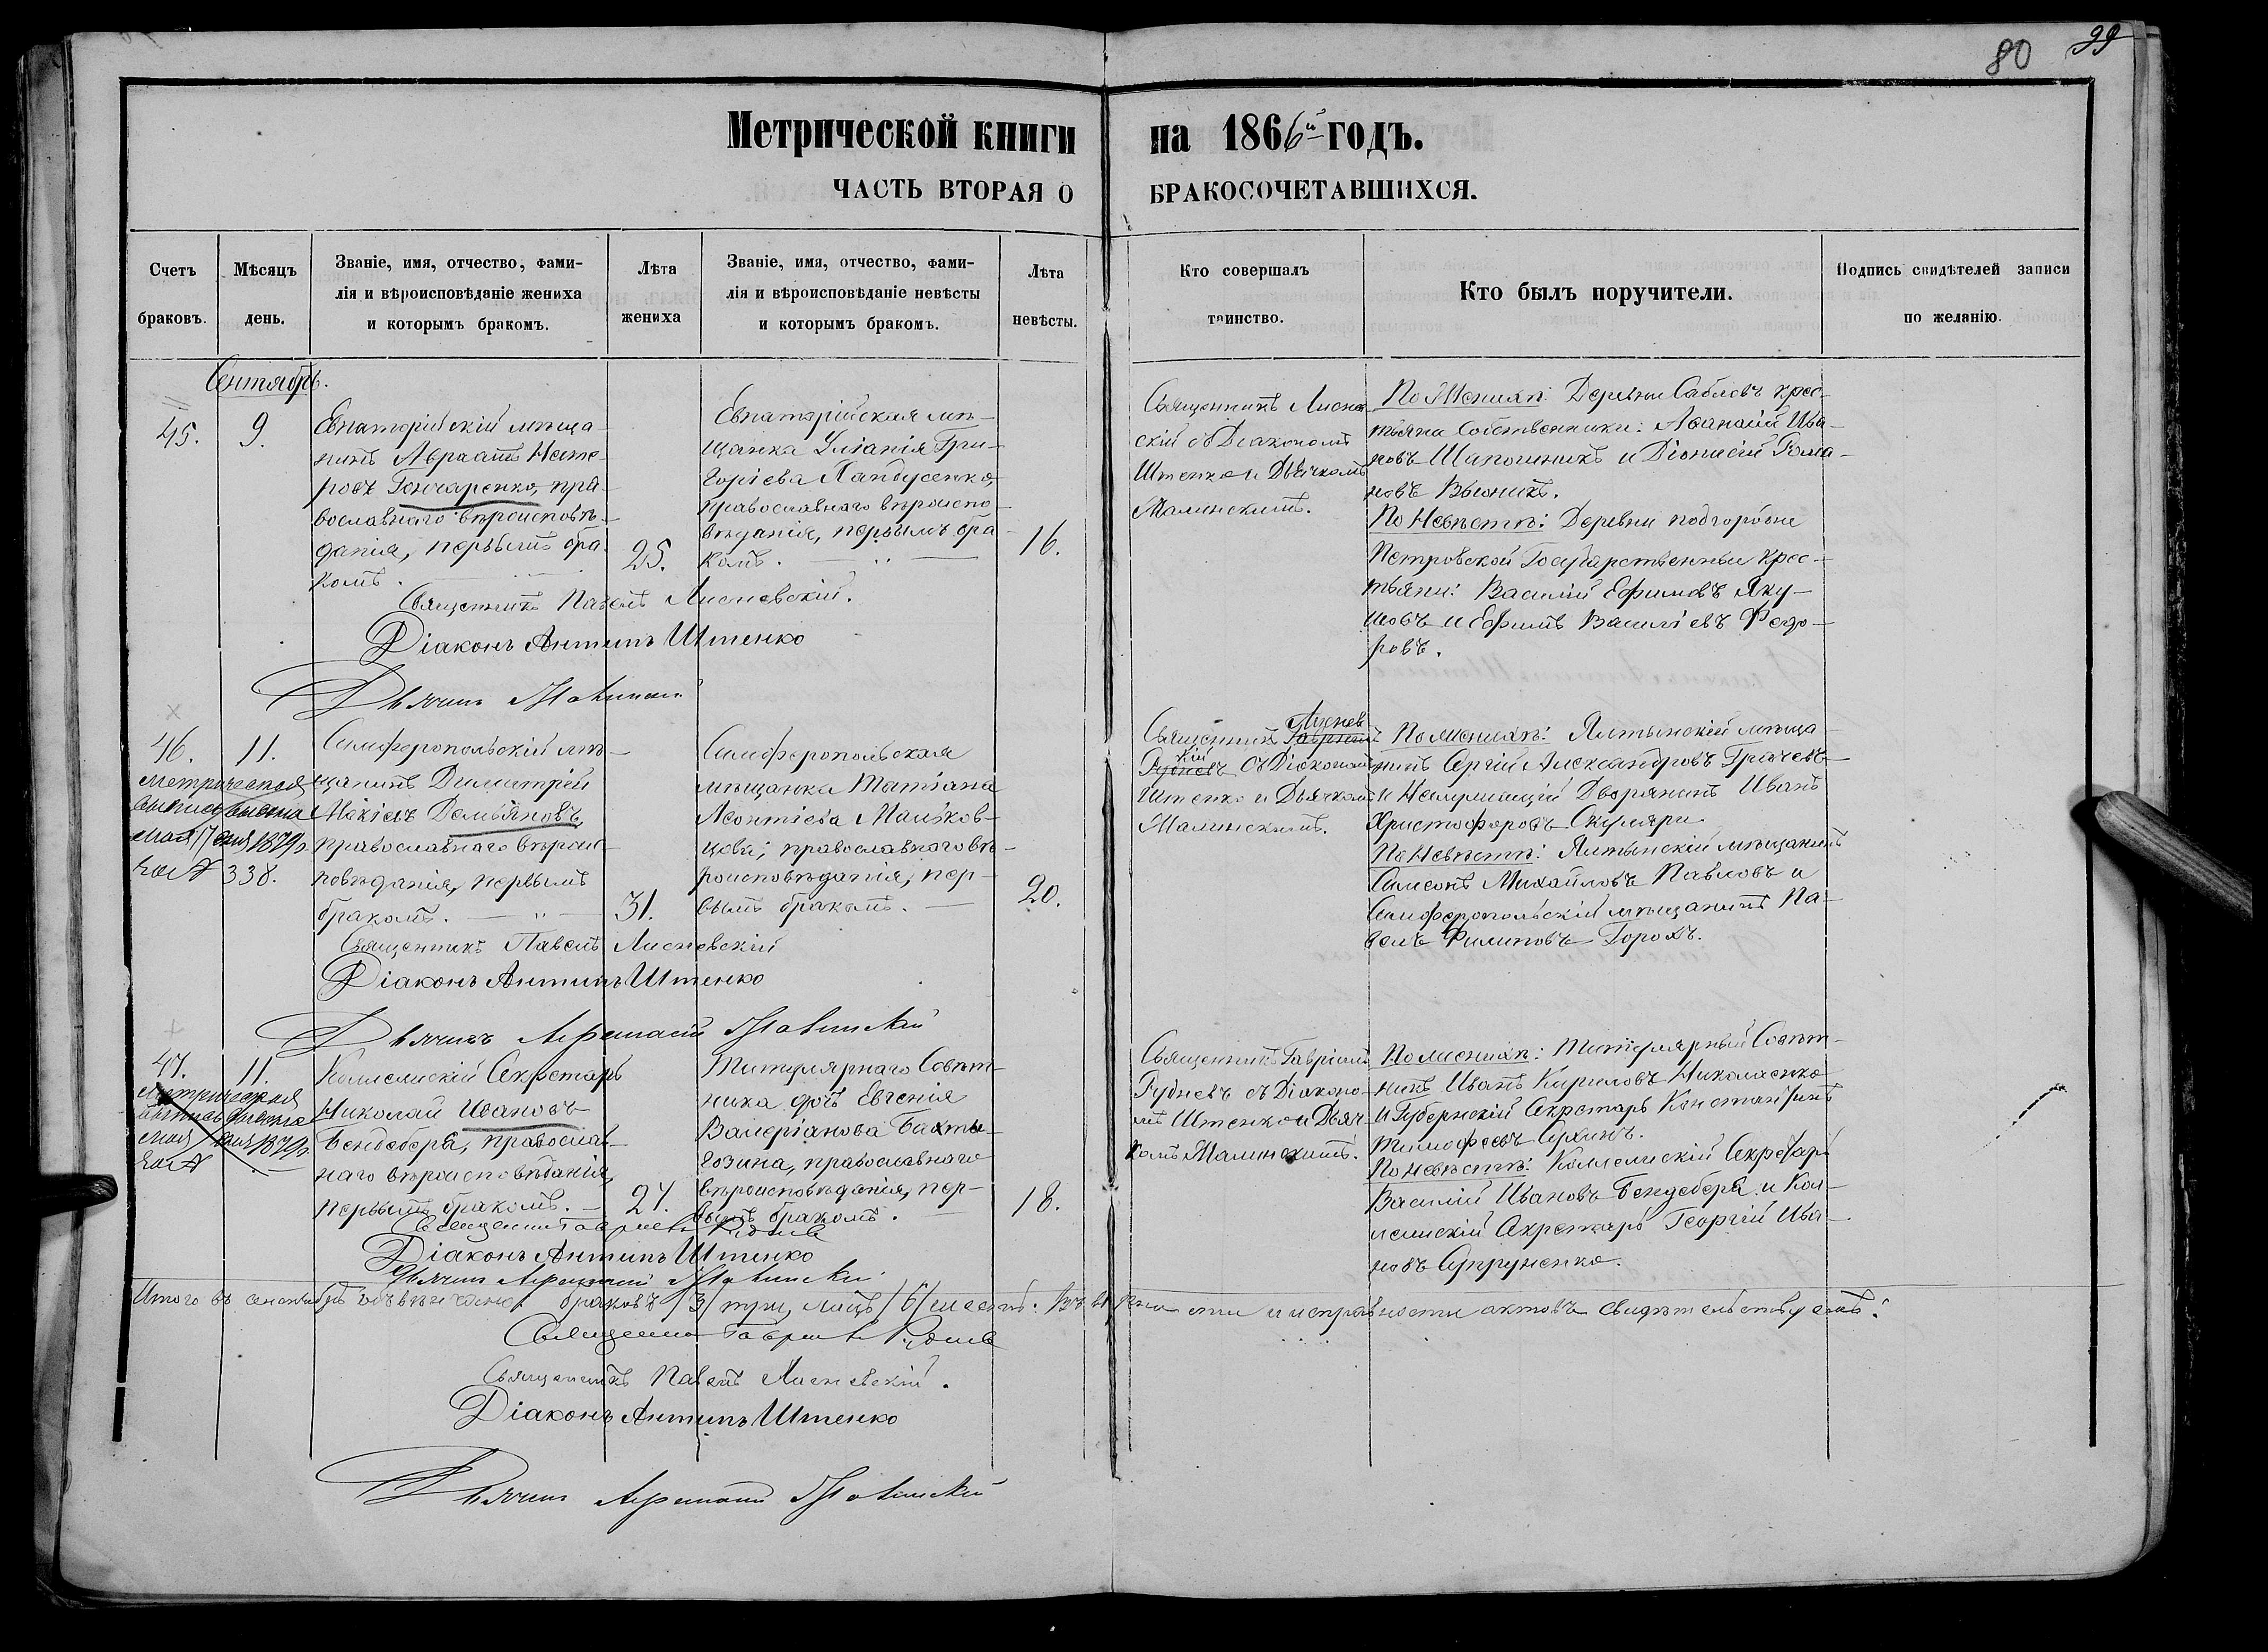 80 99
Метрической книги на 1866й годъ.
ЧАСТЬ ВТОРАЯ О БРАКОСОЧЕТАВШИХСЯ.
Счетъ браковъ.
Мѣсяцъ день.
Званіе, имя, отчество, фами-
лія и вѣроисповѣданіе жениха
и которымъ бракомъ.
Лѣта
жениха
Званіе, имя, отчество, фами-
лія и вѣроисповѣданіе невѣсты
и которымъ бракомъ.
Лѣта
невѣсты.
Кто совершалъ
таинство.
Кто былъ поручители.
Подпись свидѣтелей записи
по желанію.
Сентябрь.
45. 9.
Евпаторійскій мѣща-
нинъ Авраамъ
Гончаренко, пра-
вославнаго вѣроисповѣ-
данія, первымъ бра-
комъ.
25.
Евпаторійская мѣ-
щанка Уліанія Гри-
горіева
православнаго вѣроиспо-
вѣданія, первымъ бра-
комъ.
16.
Священникъ Лиснев-
скій съ Діакономъ
Штенко и Дьячкомъ
Малинскимъ.
По Женихѣ: Деревни Сабловъ крес-
тьяне Собственники: Афанасій Ива-
новъ Шапочникъ и Діонисій Рома-
новъ
По Невѣстѣ: Деревни подгородне
Петровской Государственные крес-
тьяне: Василій Ефимовъ Яку-
шовъ и Ефимъ Василіевъ Федо-
ровъ.
Священникъ Павелъ Лисневскій.
Діаконъ Антипъ Штенко
Дьячекъ
46. 11.
Метрическая
выпись выдана
мая 17 дня 1879 г.
за № 338.
Симферопольскій мѣ-
щанинъ Димитрій
Демьяновъ,
православнаго вѣроис-
повѣданія, первымъ
бракомъ.
31.
Симферопольская
мѣщанка Татіана
Леонтіева Малков-
цова, православнаго вѣ-
роисповѣданія, пер-
вымъ бракомъ.
20.
Священникъ Гавріилъ Лиснев
Рудневъ кій съ Діакономъ
Штенко и Дьячкомъ
Малинскимъ.
По женихѣ: Ялтынскій мѣща-
нинъ Сергій Александровъ Грачевъ
и Неслужащій Дворянинъ Иванъ
Христофоровъ Скуляри
По Невѣстѣ: Ялтынскій мѣщанинъ
Самсонъ Михайловъ Павловъ и
Симферопольскій мѣщанинъ Па-
велъ Филиповъ Горохъ.
Священникъ Павелъ Лисневскій
Діаконъ Антипъ Штенко
Дьячекъ
47. 11.
Метрическая
выпись выдана
мая дня 1879 г.
за №
Коллежскій Секретарь
Николай Ивановъ
Бендебера, православ-
наго вѣроисповѣданія,
первымъ бракомъ.
27.
Титулярнаго Совѣт-
ника дочь Евгенія
Валеріанова Бахты-
гозина, православнаго
вѣроисповѣданія, пер-
вымъ бракомъ.
18.
Священникъ Гавріилъ
Рудневъ съ Діаконо-
мъ Штенко и Дьяч-
комъ Малинскимъ.
По женихѣ: Титулярный Совѣт-
никъ Иванъ Кириловъ Николаенко
и Губернскій Секретарь Константинъ
Тимофеевъ
По невѣстѣ: Коллежскій Секретарь
Василій Ивановъ Бендебера и Кол-
лежскій Секретарь Георгій Ива-
новъ Супруненко.
Священникъ Гавріилъ Рудневъ
Діаконъ Антипъ Штенко
Дьячекъ
Итого въ сентябрѣ повѣнчано браковъ /3/ три, лицъ /6/ шесть. Въ вѣрности и исправности актовъ свидѣтельствуемъ:
Священникъ Гавріилъ Рудневъ
Священникъ Павелъ Лисневскій.
Діаконъ Антипъ Штенко
Дьячекъ